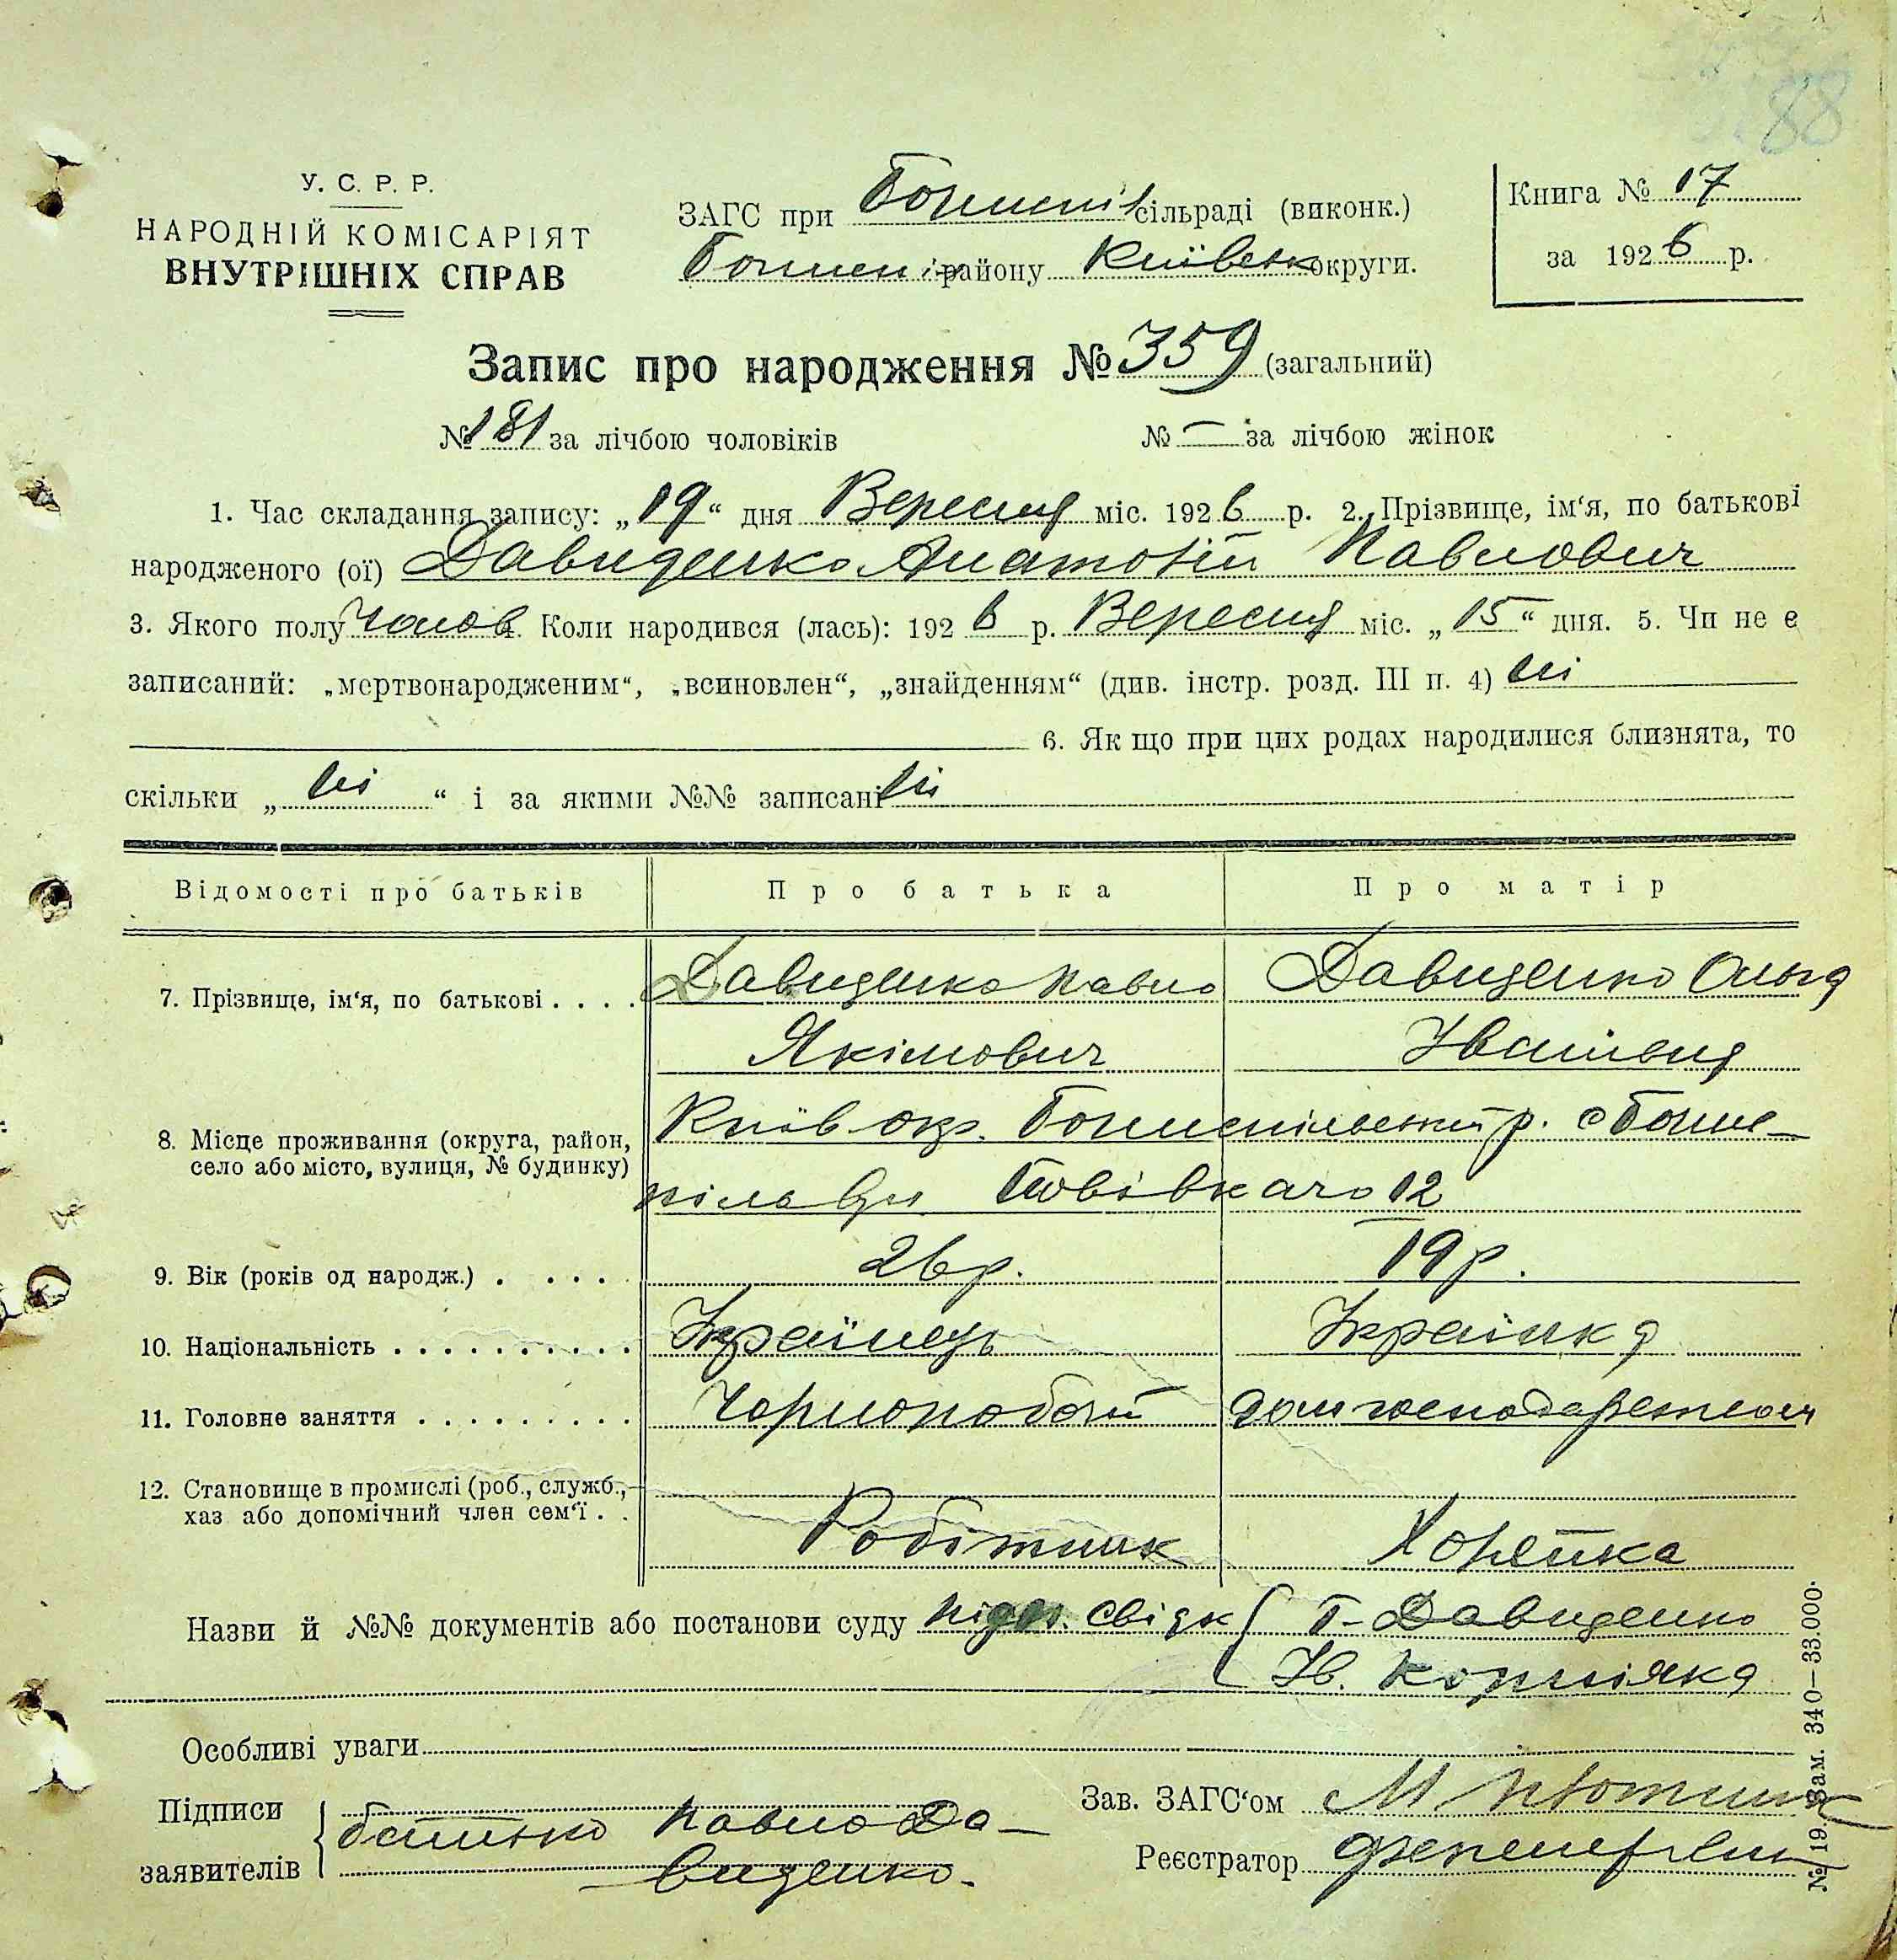 188
У. С. Р. Р.
НАРОДНІЙ КОМІСАРІЯТ
ВНУТРІШНІХ СПРАВ
ЗАГС при Бориспіл сільраді (виконк.)
Борисп району Київськ округи.
Книга № 17
за 1926 р.
Запис про народження № 359 (загальний)
№ 181 за лічбою чоловіків № — за лічбою жінок
1. Час складання запису: „19“ дня Вересня міс. 1926 р. 2. Прізвище, ім‘я, по батькові
народженого (ої) Давиденко Анатолій Павлович
3. Якого полу Чолов 4. Коли народився (лась): 1926 р. Вересня міс. „15“ дня. 5. Чи не є
записаний: „мертвонародженим“, „всиновлен“, „знайденням“ (див. інстр. розд. III п. 4) ні
6. Як що при цих родах народилися близнята, то
скільки „ ні “ і за якими №№ записані ні
Відомості про батьків Про батька Про матір
7. Прізвище, ім‘я, по батькові . . . . Давиденко Павло Давиденко Ольга
Якімович Іванівна
8. Місце проживання (округа, район, село або місто, вулиця, № будинку) Київ окр. Бориспільський р. с Борис-
піль вул 12
9. Вік (років од народж.) . . . . 26 р. 19 р.
10. Національність . . . . . . . . . . Українець Українка
11. Головне заняття . . . . . . . . . Чорноробочий дом господарством
12. Становище в промислі (роб., служб., хаз або допомічний член сем‘ї . . Робітник
Назви й №№ документів або постанови суду свідк Давиденко
Ів.
Особливі уваги
Підписи заявителів батько Павло Да-
виденко.
Зав. ЗАГС‘ом
Реєстратор
№ 19. Зам. 340—33.000.